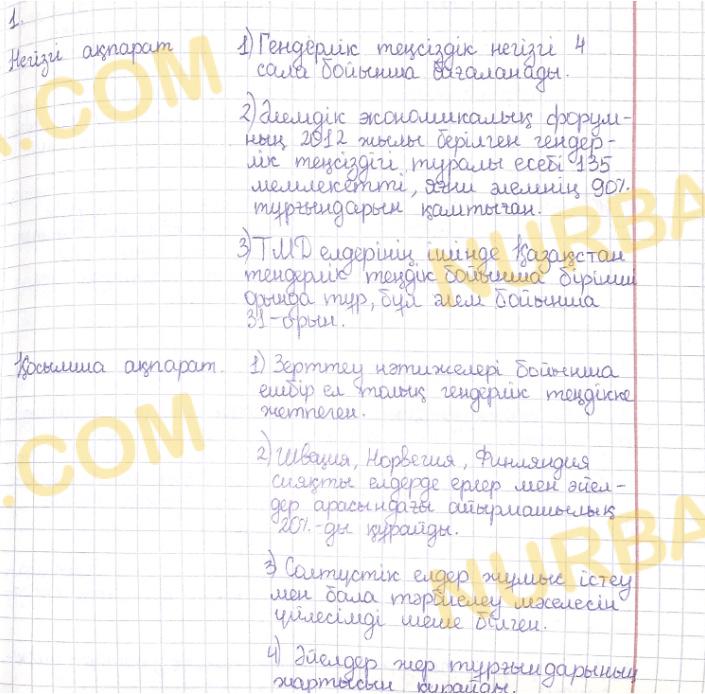 1.
Негізгі ақпарат
1) Гендерлік теңсіздік негізгі 4
сала бойынша бағаланады.
2) Әлемдік экономикалық форум-
ның 2012 жылы берілген гендер-
лік теңсіздігі туралы есебі 135
мемлекетті, яғни әлемнің 90%
тұрғындарын қамтыған.
3) ТМД елдерінің ішінде Қазақстан
гендерлік теңдік бойынша бірінші
орында тұр, бұл әлем бойынша
31-орын.
Қосымша ақпарат.
1) Зерттеу нәтижелері бойынша
ешбір ел толық гендерлік теңдікке
жетпеген.
2) Швеция, Норвегия, Финляндия
сияқты елдерде ерлер мен әйел-
дер арасындағы айырмашылық
20%-ды құрайды.
3) Солтүстік елдер жұмыс істеу
мен бала тәрбиелеу мәселесін
үйлесімді шеше білген.
4) Әйелдер жер тұрғындарының
жартысын құрайды.
A.COM
NURBA
.COM
NURBA